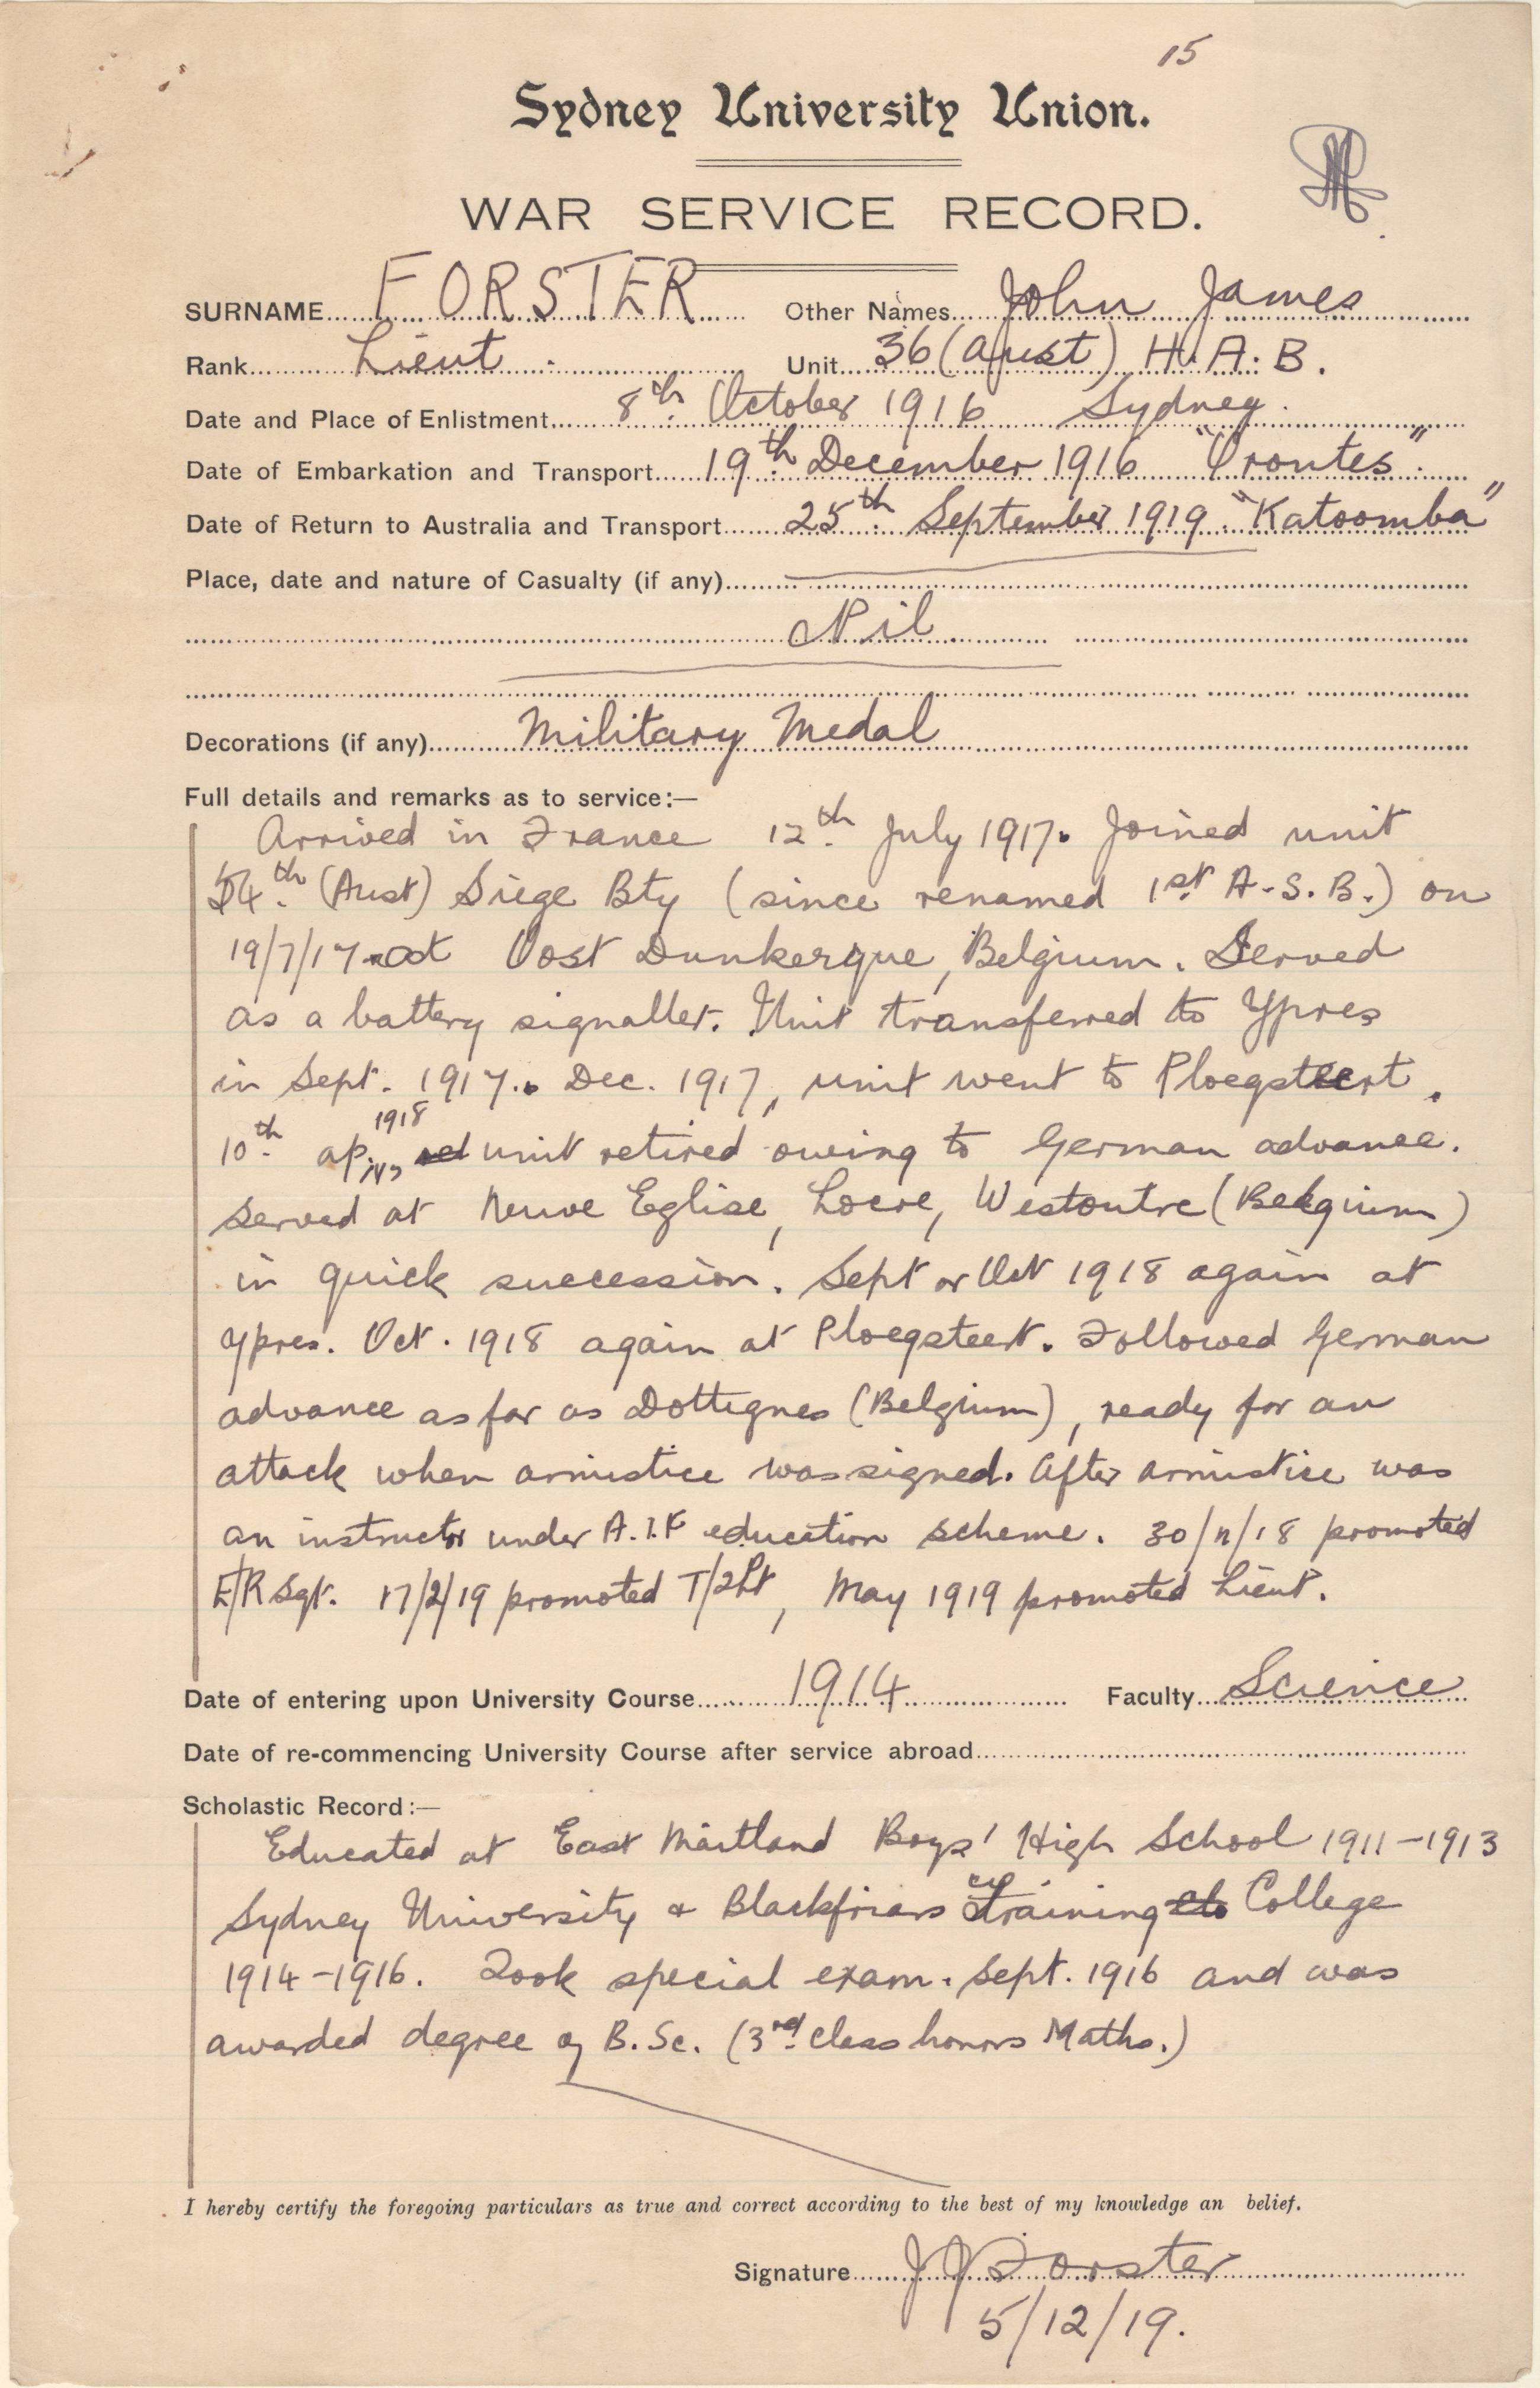 15
Sydney University Union.
WAR SERVICE RECORD.
SURNAME FORSTER Other Names John James
Rank Lieut. Unit 36 (Aust) H.A.B.
Date and Place of Enlistment 8th October 1916 Sydney.
Date of Embarkation and Transport 19th December 1916 "Orontes".
Date of Return to Australia and Transport 25th September 1919. "Katoomba"
Place, date and nature of Casualty (if any)
Nil
Decorations (if any) Military Medal
Full details and remarks as to service:—
Arrived in France 12th July 1917. Joined unit
54th (Aust) Siege Bty (since renamed 1st A.S.B.) on
19/7/17 at Oost Dunkerque, Belgium. Served
as a battery signaller. Unit transferred to Ypres
in Sept. 1917. Dec. 1917, unit went to Ploegsteert.
10th April 1918 unit retired owing to German advance.
Served at Neuve Eglise, Locre, Westoutre (Belgium)
in quick succession. Sept or Oct 1918 again at
Ypres. Oct. 1918 again at Ploegsteert. Followed German
advance as far as Dottignes (Belgium), ready for an
attack when armistice was signed. After armistice was
an instructor under A.I.F education scheme. 30/11/18 promoted
E/R Sgt. 17/2/19 promoted T/2Lt, May 1919 promoted Lieut.
Date of entering upon University Course 1914 Faculty Science
Date of re-commencing University Course after service abroad
Scholastic Record:—
Educated at East Maitland Boys' High School 1911-1913
Sydney University & Blackfriars Training College
1914-1916. Took special exam. Sept. 1916 and was
awarded degree of B.Sc. (3rd class honors Maths.)
I hereby certify the foregoing particulars as true and correct according to the best of my knowledge an belief.
Signature J J Forster
5/12/19.